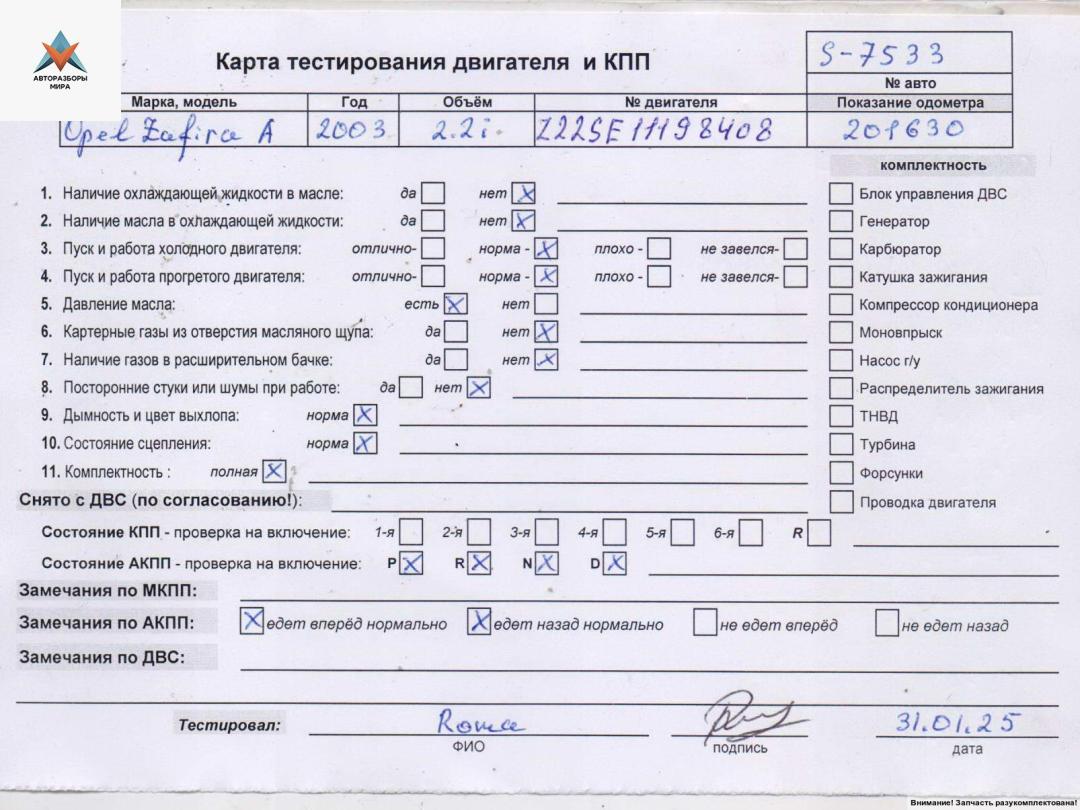 АВТОРАЗБОРЫ
МИРА
Карта тестирования двигателя и КПП
S-7533
№ авто
Марка, модель Год Объём № двигателя Показание одометра
Opel Zafira A 2003 2.2i Z22SE11198408 201630
комплектность
1. Наличие охлаждающей жидкости в масле: да нет X Блок управления ДВС
2. Наличие масла в охлаждающей жидкости: да нет X Генератор
3. Пуск и работа холодного двигателя: отлично- норма - X плохо - не завелся- Карбюратор
4. Пуск и работа прогретого двигателя: отлично- норма - X плохо - не завелся- Катушка зажигания
5. Давление масла: есть X нет Компрессор кондиционера
6. Картерные газы из отверстия масляного щупа: да нет X Моновпрыск
7. Наличие газов в расширительном бачке: да нет X Насос г/у
8. Посторонние стуки или шумы при работе: да нет X Распределитель зажигания
9. Дымность и цвет выхлопа: норма X ТНВД
10. Состояние сцепления: норма X Турбина
11. Комплектность : полная X Форсунки
Снято с ДВС (по согласованию!): Проводка двигателя
Состояние КПП - проверка на включение: 1-я 2-я 3-я 4-я 5-я 6-я R
Состояние АКПП - проверка на включение: P X R X N X D X
Замечания по МКПП:
Замечания по АКПП: X едет вперёд нормально X едет назад нормально не едет вперёд не едет назад
Замечания по ДВС:
Тестировал: Рома 31.01.25
ФИО подпись дата
Внимание! Запчасть разукомплектована!